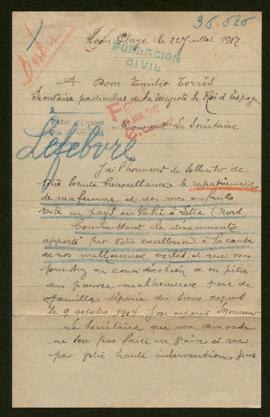 35.626
le 22 Juillet 1917
FUNDACION
CIVIL
A Don Emilio Torrès
Secrétaire particulier de la Majesté le Roi d'Espag
Monsieur le Secrétaire
Lefebvre
J'ai l'honneur de solliciter de
votre haute bienveillance le rapatriement
de ma femme et de mes enfants
resté en pays envahi à Lille (Nord
Connaissant le dévouement
apporté par votre excellence à la cause
de nos malheureux exilés et que vous
prendrez en considération et en pitié
un pauvre malheureux père de
famille séparé des siens depuis
le 9 octobre 1914
Monsieur
le Secrétaire que ma demande
ne sera pas faite en vain et
par votre haute intervention